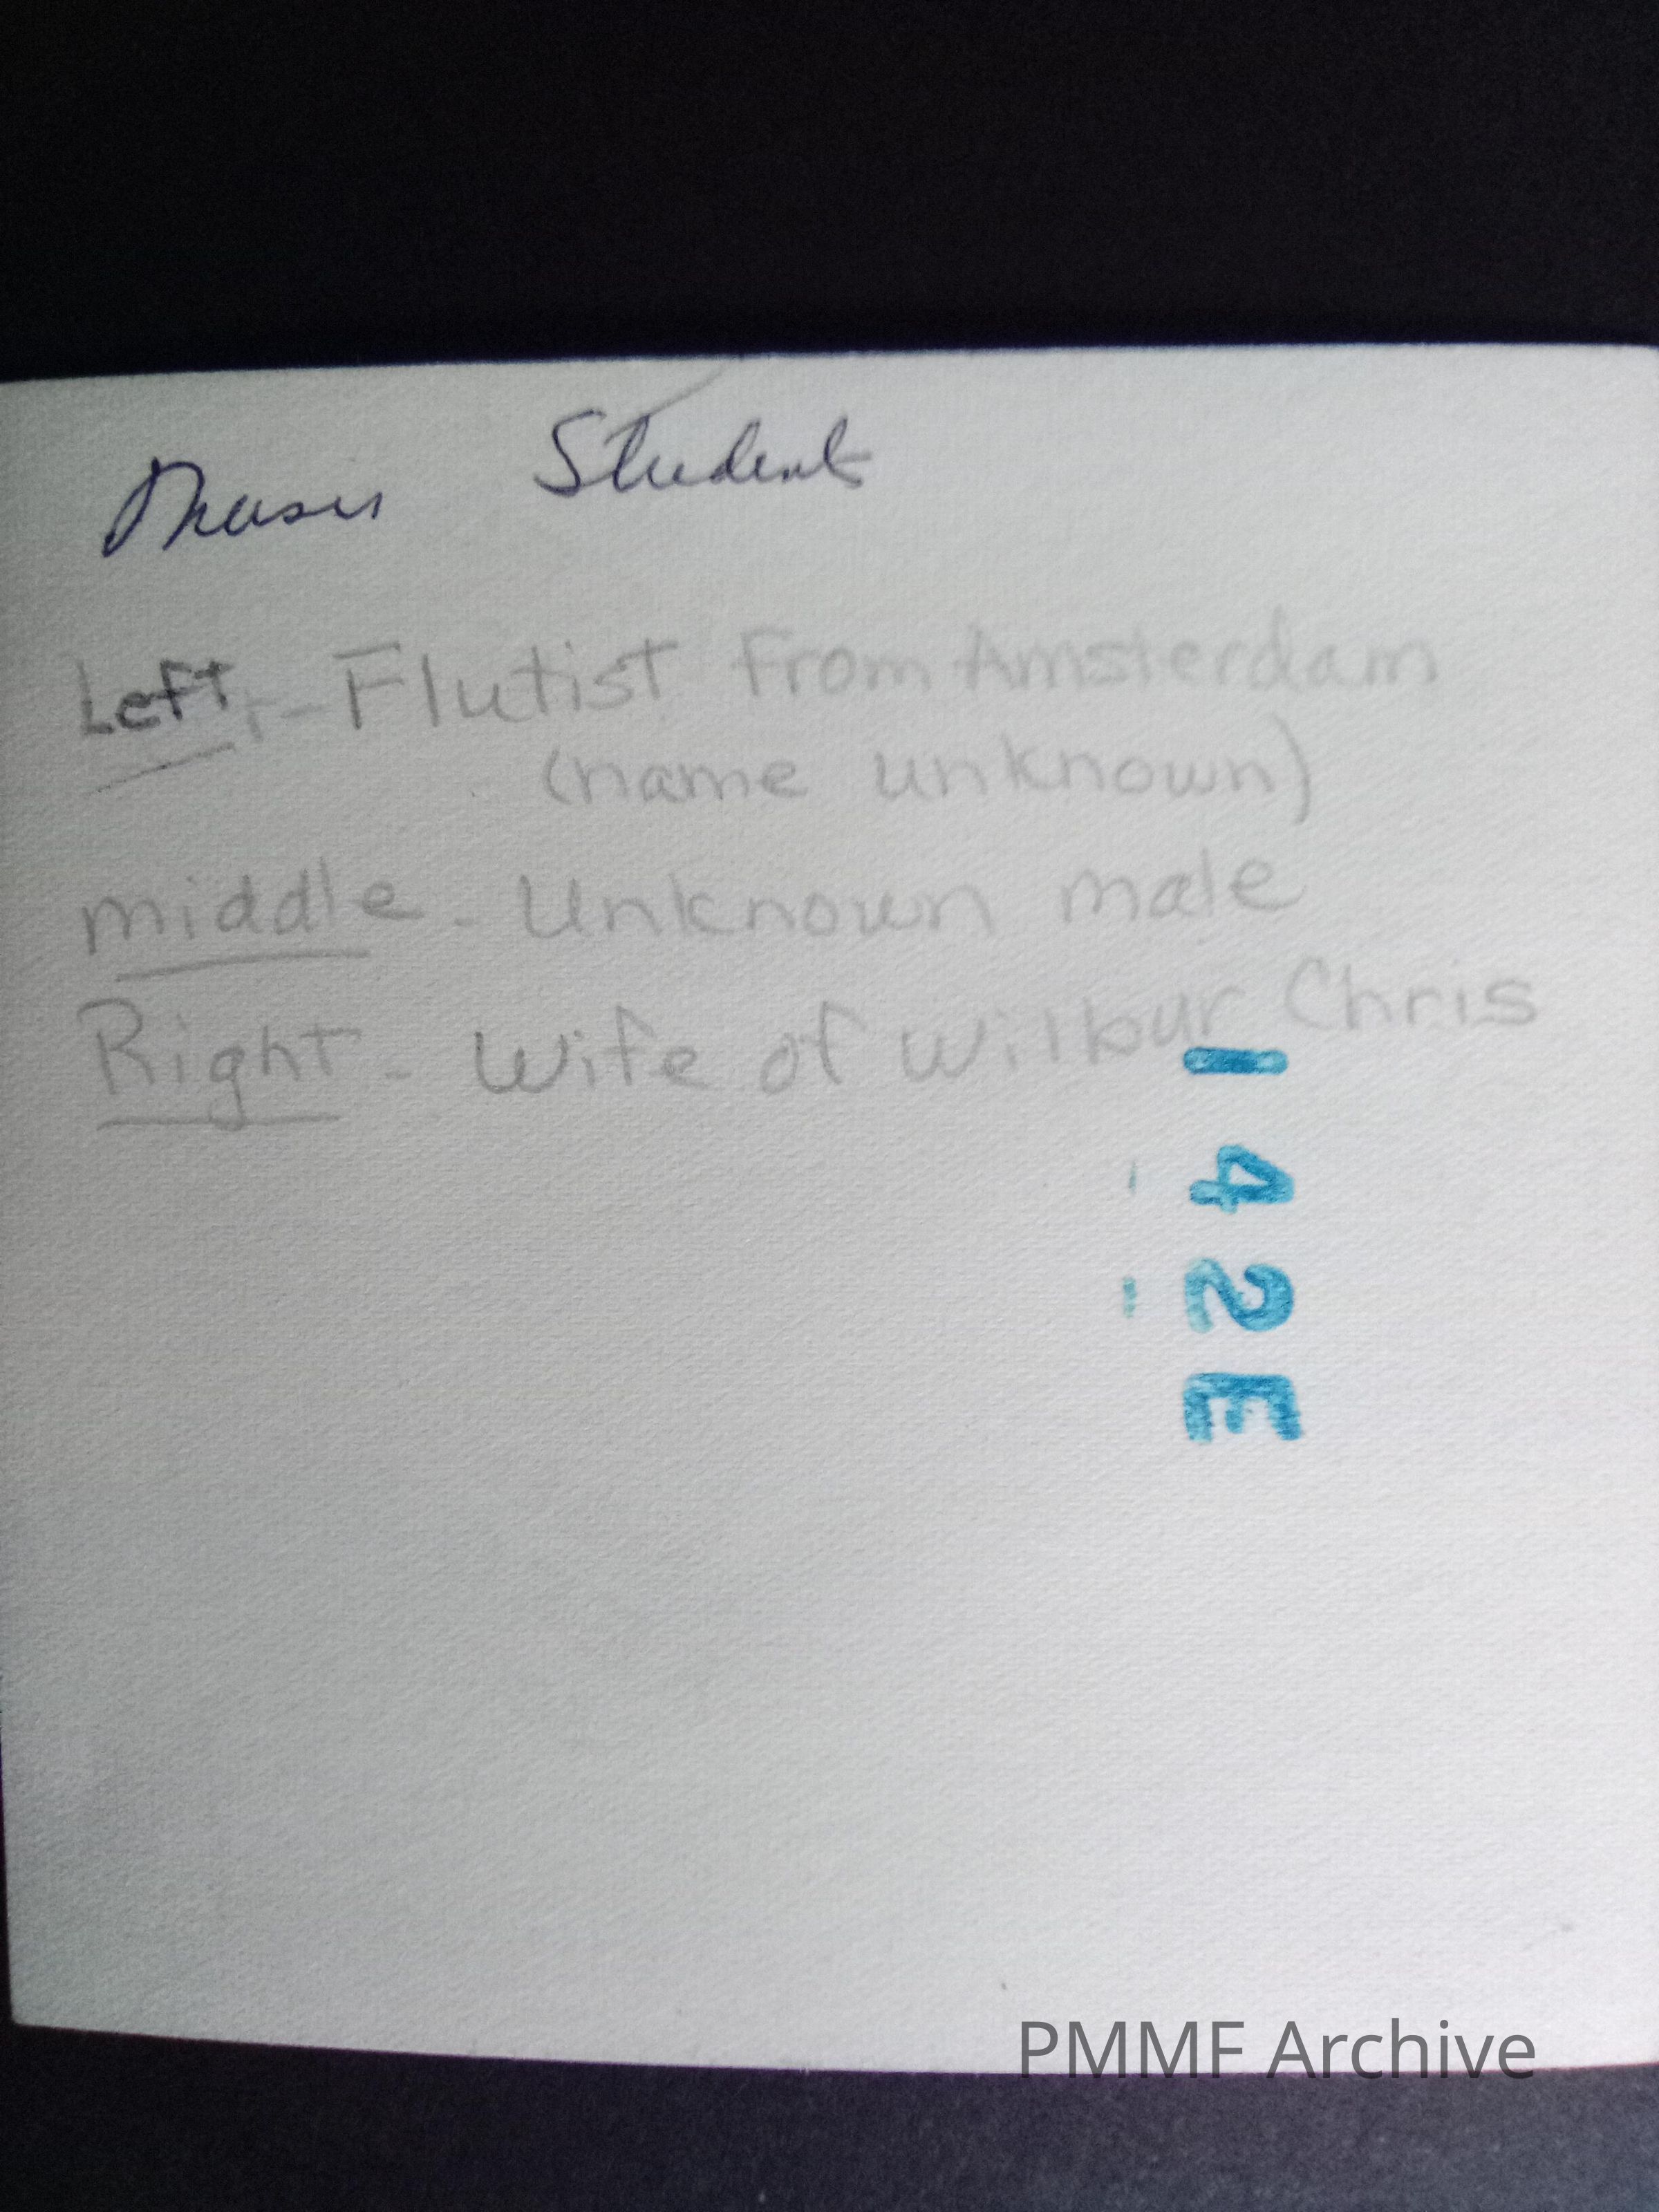 Students
Left - Flutist from Amsterdam
(name unknown)
middle - Unknown male
Right - Wife of Wilbur Chris
142E
PMMF Archive